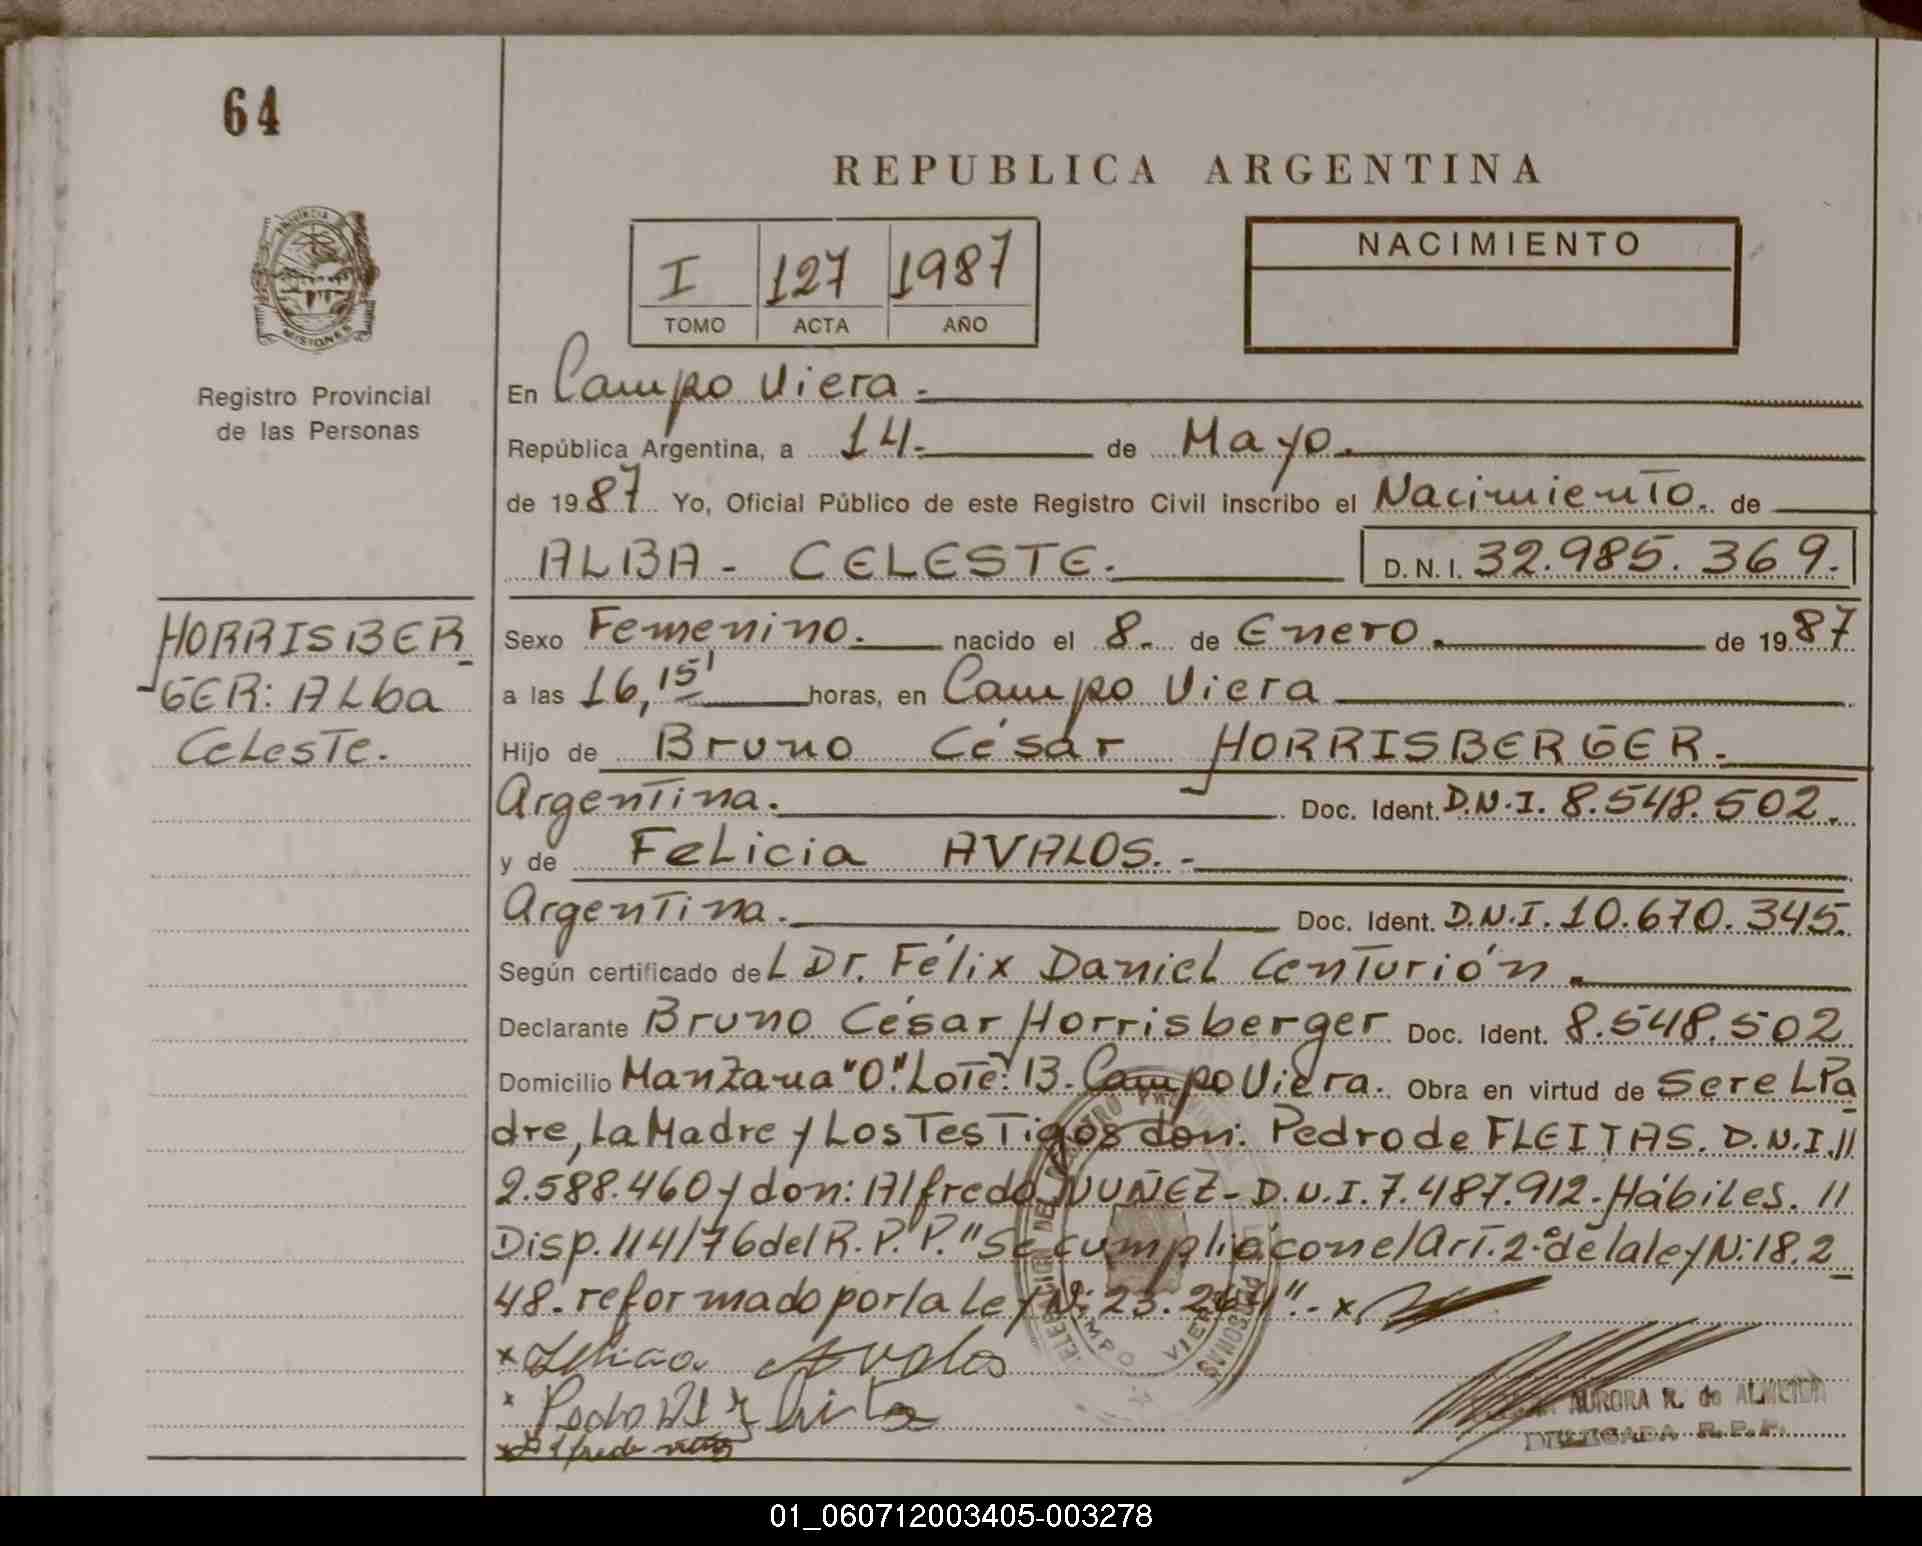 64
REPUBLICA ARGENTINA
PROVINCIA
MISIONES
I 127 1987
TOMO ACTA AÑO
NACIMIENTO
Registro Provincial
de las Personas
En Campo Viera.
República Argentina, a 14. de Mayo.
de 1987 Yo, Oficial Público de este Registro Civil inscribo el Nacimiento. de
ALBA - CELESTE. D. N. I. 32.985.369.
HORRISBER_
GER: ALba
CeLesTe.
Sexo Femenino. nacido el 8. de Enero. de 1987
a las 16,15' horas, en Campo Viera
Hijo de Bruno César HORRISBERGER.
Argentina. Doc. Ident. D.N.I. 8.548.502.
y de FeLicia AVALOS. -
Argentina. Doc. Ident. D.N.I. 10.670.345.
Según certificado deL Dr. Félix Daniel Centurión.
Declarante Bruno César Horrisberger Doc. Ident. 8.548.502
Domicilio Manzana "O" Lote: 13. Campo Viera. Obra en virtud de Ser eL Pa
dre, La Madre y Los Testigos don: Pedro de FLEITAS. D.N.I. //
2.588.460 y don: Alfredo NUÑEZ - D.N.I. 7.487.912. Hábiles. //
Disp. 114/76 del R.P.P. "Se cumplió con el Art. 2º de la ley N: 18.2_
48. reformado por la Ley N: 23.264". - x
x Avalos
x Pedro
x Alfredo
CAMPO VIERA
AURORA R. de ALMEIDA
DELEGADA R.P.P.
01_060712003405-003278